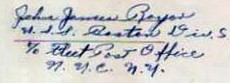 John James Boyer
U.S.S. Boston Div. S
c/o Fleet Post Office
N.Y.C. N.Y.